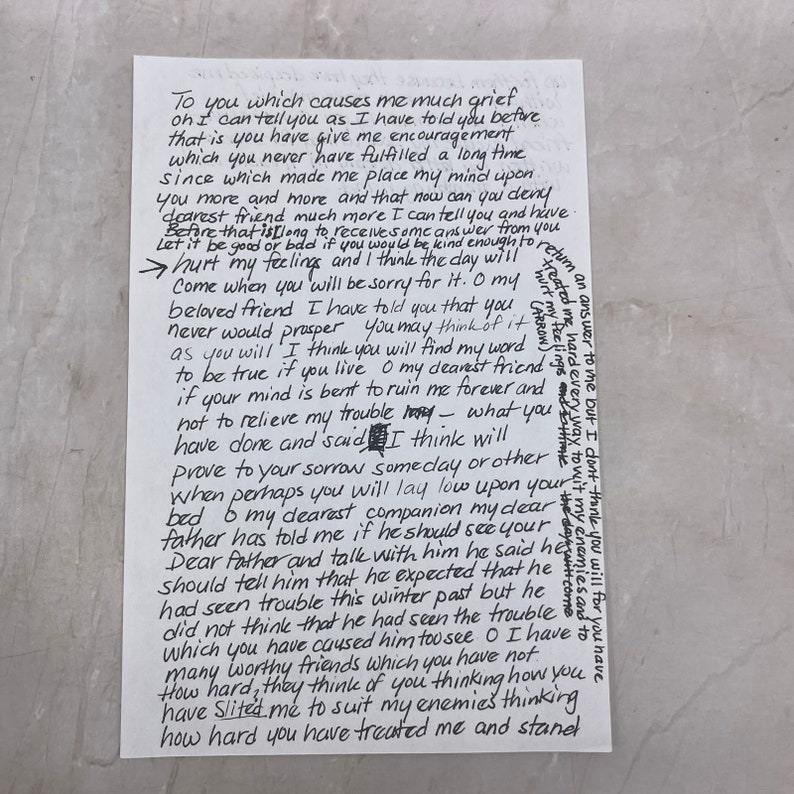 To you which causes me much grief
oh I can tell you as I have told you before
that is you have give me encouragement
which you never have fulfilled a long time
since which made me place my mind upon
you more and more and that now can you deny
dearest friend much more I can tell you and have
Before that is long to receive some answer from you
Let it be good or bad if you would be kind enough to
return an answer to me but I dont think you will for you have
treated me hard every way to wit my enemies and to
hurt my feelings and I think the day will come
(ARROW)
→ hurt my feelings and I think the day will
Come when you will be sorry for it. O my
beloved friend I have told you that you
never would prosper you may think of it
as you will I think you will find my word
to be true if you live O my dearest friend
if your mind is bent to ruin me forever and
not to relieve my trouble — what you
have done and said I think will
prove to your sorrow someday or other
when perhaps you will lay low upon your
bed O my dearest companion my dear
father has told me if he should see your
Dear father and talk with him he said he
should tell him that he expected that he
had seen trouble this winter past but he
did not think that he had seen the trouble
which you have caused him too see O I have
many worthy friends which you have not
How hard, they think of you thinking how you
have Slited me to suit my enemies thinking
how hard you have treated me and stand